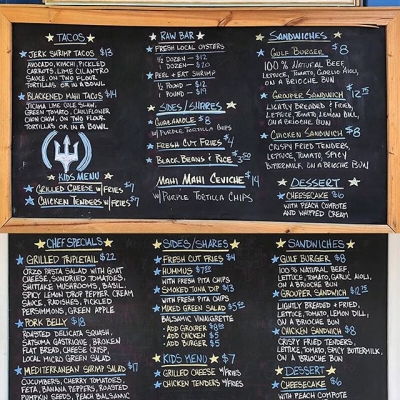 TACOS
JERK SHRIMP TACOS $13
AVOCADO, KIMCHI, PICKLED
CARROTS, LIME CILANTRO
SAUCE, ON TWO FLOUR
TORTILLAS OR IN A BOWL
BLACKENED MAHI TACOS $14
JICAMA LIME COLE SLAW,
GREEN TOMATO, CAULIFLOWER
CHOW CHOW, ON TWO FLOUR
TORTILLAS OR IN A BOWL
KIDS MENU
GRILLED CHEESE W/FRIES $7
CHICKEN TENDERS W/FRIES $7
RAW BAR
FRESH LOCAL OYSTERS
1/2 DOZEN - $12
1 DOZEN - $20
PEEL + EAT SHRIMP
1/2 POUND - $12
1 POUND - $19
SIDES/SHARES
GUACAMOLE $8
W/PURPLE TORTILLA CHIPS
FRESH CUT FRIES $4
BLACK BEANS & RICE $3.50
MAHI MAHI CEVICHE $14
W/PURPLE TORTILLA CHIPS
SANDWICHES
GULF BURGER $8
100% NATURAL BEEF,
LETTUCE, TOMATO, GARLIC AIOLI,
ON A BRIOCHE BUN
GROUPER SANDWICH $12.95
LIGHTLY BREADED & FRIED,
LETTUCE, TOMATO, LEMON DILL,
ON A BRIOCHE BUN
CHICKEN SANDWICH $8
CRISPY FRIED TENDERS,
LETTUCE, TOMATO, SPICY
BUTTERMILK, ON A BRIOCHE BUN
DESSERT
CHEESECAKE $6
WITH PEACH COMPOTE
AND WHIPPED CREAM
CHEF SPECIALS
GRILLED TRIPLETAIL $22
ORZO PASTA SALAD WITH GOAT
CHEESE, SUNDRIED TOMATOES,
SHIITAKE MUSHROOMS, BASIL,
SPICY LEMON DROP PEPPER CREAM
SAUCE, RADISHES, PICKLED
PERSIMMONS, GREEN APPLE
PORK BELLY $18
ROASTED DELICATA SQUASH,
SATSUMA GASTRIQUE, BROKEN
FLAT BREAD, CHEESE CRISP,
LOCAL MICRO GREEN SALAD
MEDITERRANEAN SHRIMP SALAD $17
CUCUMBERS, CHERRY TOMATOES,
FETA, BANANA PEPPERS, ROASTED
PUMPKIN SEEDS, PEACH BALSAMIC
SIDES/SHARES
FRESH CUT FRIES $4
HUMMUS
WITH FRESH PITA CHIPS
SMOKED TUNA DIP $13
WITH FRESH PITA CHIPS
MIXED GREEN SALAD
BALSAMIC VINAIGRETTE
ADD GROUPER
ADD CHICKEN $5
ADD SHRIMP $8
KIDS MENU $7
GRILLED CHEESE W/FRIES
CHICKEN TENDERS W/FRIES
SANDWICHES
GULF BURGER $8
100% NATURAL BEEF,
LETTUCE, TOMATO, GARLIC AIOLI,
ON A BRIOCHE BUN
GROUPER SANDWICH $12.95
LIGHTLY BREADED + FRIED,
LETTUCE, TOMATO, LEMON DILL,
ON A BRIOCHE BUN
CHICKEN SANDWICH $8
CRISPY FRIED TENDERS,
LETTUCE, TOMATO, SPICY BUTTERMILK,
ON A BRIOCHE BUN
DESSERT
CHEESECAKE $6
WITH PEACH COMPOTE